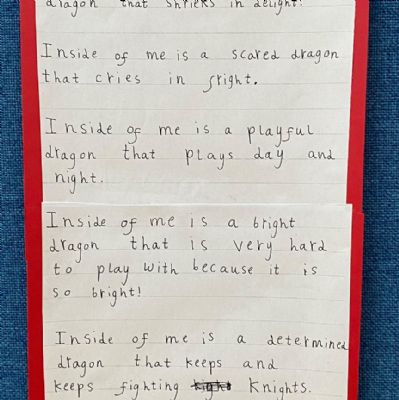 dragon that shrieks in delight!
Inside of me is a scared dragon
that cries in fright.
Inside of me is a playful
dragon that plays day and
night.
Inside of me is a bright
dragon that is very hard
to play with because it is
so bright!
Inside of me is a determined
dragon that keeps and
keeps fighting Knights.